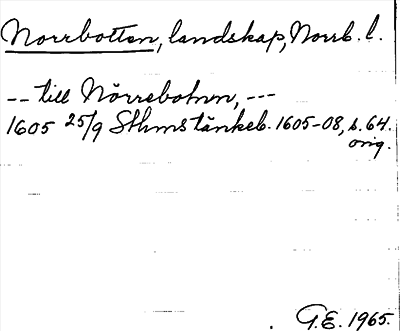 Norrbotten, landskap, Norrb. l.
-- till Nörrebotnn, ---
1605 25/9 Sthms tänkeb. 1605-08, s. 64.
orig.
G.E. 1965.